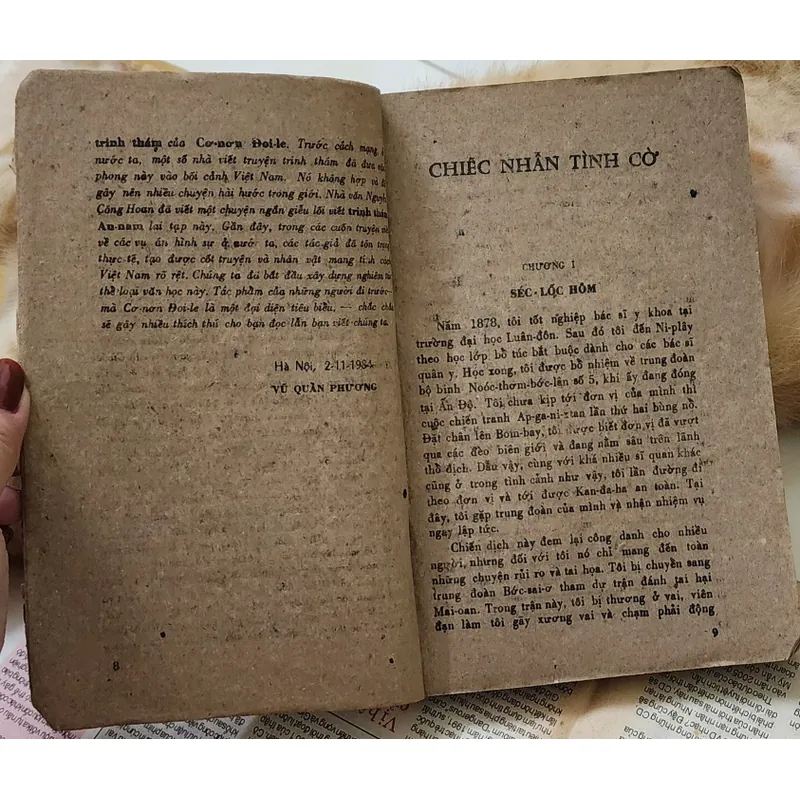 trinh thám của Cơ-nơn Đoi-le. Trước cách mạng
nước ta, một số nhà viết truyện trinh thám đã đưa
phong này vào bối cảnh Việt Nam. Nó không hợp và
gây nên nhiều chuyện hài hước trong giới. Nhà văn
Công Hoan đã viết một chuyện ngắn giễu lối viết trinh thám
An-nam lai tạp này. Gần đây, trong các cuốn truyện
về các vụ án hình sự ở nước ta, các tác giả đã tôn
thực tế, tạo được cốt truyện và nhân vật mang tính cách
Việt Nam rõ rệt. Chúng ta đã bắt đầu xây dựng nghiên
thể loại văn học này. Tác phẩm của những người đi trước
mà Cơ-nơn Đoi-le là một đại diện tiêu biểu, — chắc
sẽ gây nhiều thích thú cho bạn đọc lẫn bạn viết chúng ta.
Hà Nội, 2-11-1984
VŨ QUẦN PHƯƠNG
8
CHIẾC NHẪN TÌNH CỜ
CHƯƠNG 1
SÉC-LỐC HÔM
Năm 1878, tôi tốt nghiệp bác sĩ y khoa tại
trường đại học Luân-đôn. Sau đó tôi đến Ni-plây
theo học lớp bổ túc bắt buộc dành cho các bác sĩ
quân y. Học xong, tôi được bổ nhiệm về trung đoàn
bộ binh Noóc-thơm-bớc-lân số 5, khi ấy đang đóng
tại Ấn Độ. Tôi chưa kịp tới đơn vị của mình thì
cuộc chiến tranh Ap-ga-ni-xtan lần thứ hai bùng nổ.
Đặt chân lên Bom-bay, tôi được biết đơn vị đã vượt
qua các đèo biên giới và đang nằm sâu trên lãnh
thổ địch. Dẫu vậy, cùng với khá nhiều sĩ quan khác
cũng ở trong tình cảnh như vậy, tôi lần đường đi
theo đơn vị và tới được Kan-đa-ha an toàn. Tại
đây, tôi gặp trung đoàn của mình và nhận nhiệm vụ
ngay lập tức.
Chiến dịch này đem lại công danh cho nhiều
người, nhưng đối với tôi nó chỉ mang đến toàn
những chuyện rủi ro và tai họa. Tôi bị chuyển sang
trung đoàn Bớc-sai-ơ tham dự trận đánh tai hại
Mai-oan. Trong trận này, tôi bị thương ở vai, viên
đạn làm tôi gãy xương vai và chạm phải động
9